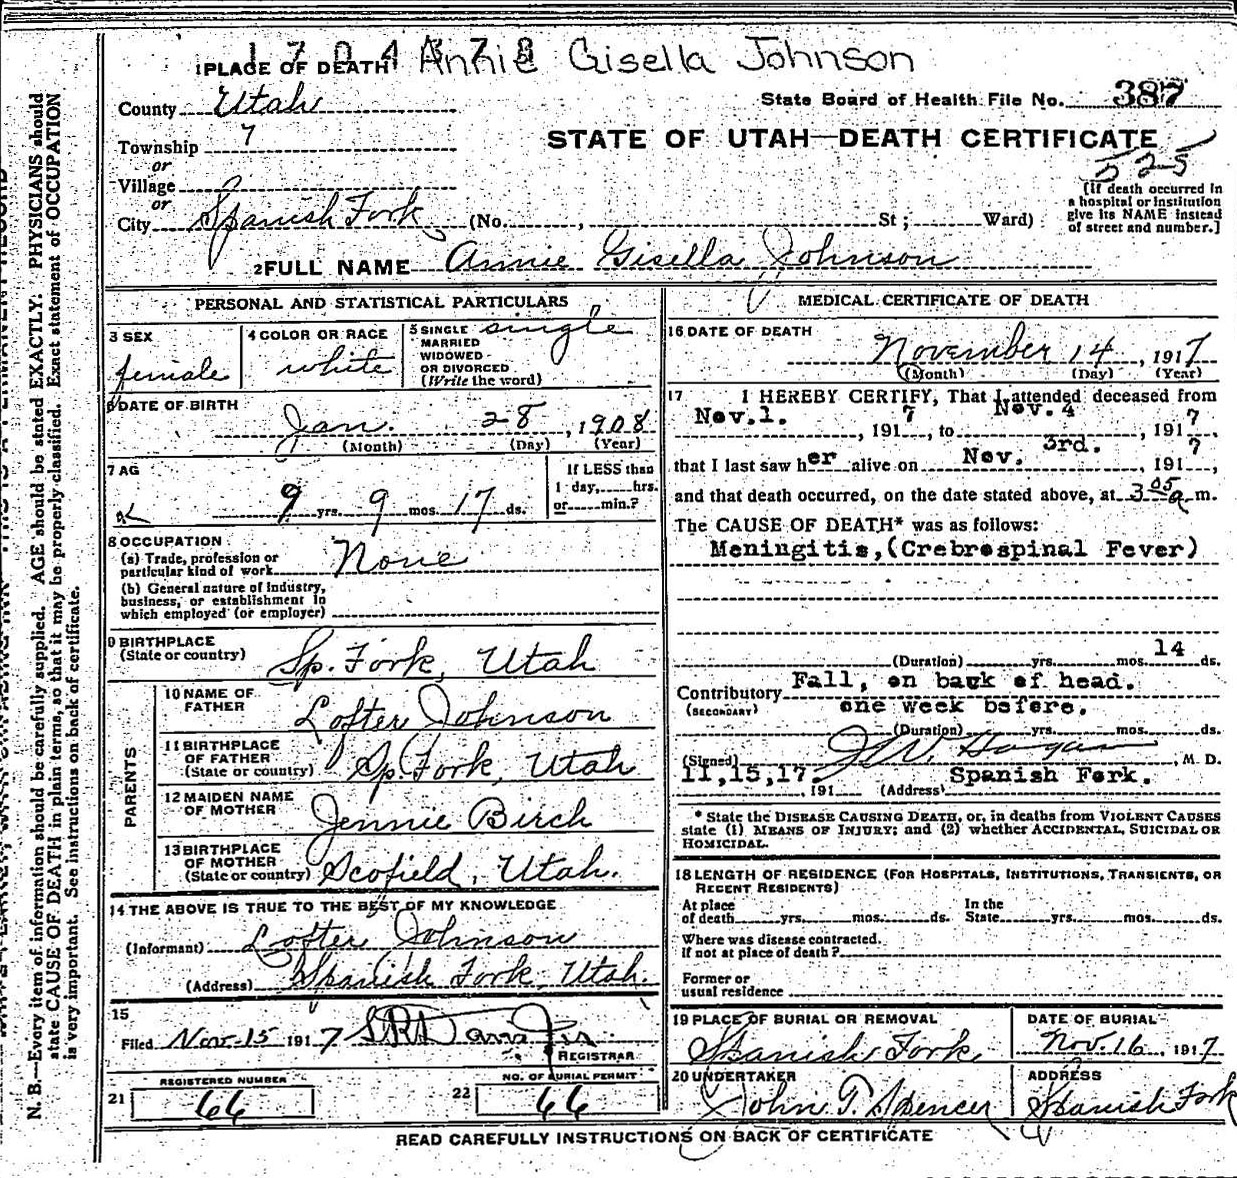 1704378 Annie Gisella Johnson
1 PLACE OF DEATH
County Utah
State Board of Health File No. 387
Township 7
STATE OF UTAH—DEATH CERTIFICATE
525
or
Village
or
City Spanish Fork (No. , St; Ward)
[If death occurred in
a hospital or institution
give its NAME instead
of street and number.]
2 FULL NAME Annie Gisella Johnson
PERSONAL AND STATISTICAL PARTICULARS
3 SEX
female
4 COLOR OR RACE
white
5 SINGLE single
MARRIED
WIDOWED
OR DIVORCED
(Write the word)
6 DATE OF BIRTH
Jan. 28, 1908
(Month) (Day) (Year)
7 AG
9 yrs. 9 mos. 17 ds.
If LESS than
1 day, hrs.
or min.?
8 OCCUPATION
(a) Trade, profession or
particular kind of work None
(b) General nature of industry,
business, or establishment in
which employed (or employer)
9 BIRTHPLACE
(State or country) Sp. Fork, Utah
PARENTS
10 NAME OF
FATHER Lofter Johnson
11 BIRTHPLACE
OF FATHER
(State or country) Sp. Fork, Utah
12 MAIDEN NAME
OF MOTHER Jennie Birch
13 BIRTHPLACE
OF MOTHER
(State or country) Scofield, Utah.
14 THE ABOVE IS TRUE TO THE BEST OF MY KNOWLEDGE
(Informant) Lofter Johnson
(Address) Spanish Fork, Utah.
15
Filed Nov. 15 1917
REGISTRAR
REGISTERED NUMBER
21 66
NO. OF BURIAL PERMIT
22 66
MEDICAL CERTIFICATE OF DEATH
16 DATE OF DEATH
November 14, 1917
(Month) (Day) (Year)
17 I HEREBY CERTIFY, That I attended deceased from
Nov.1. , 1917, to Nov. 4 , 1917,
that I last saw her alive on Nov. 3rd. , 1917,
and that death occurred, on the date stated above, at 3 05 a m.
The CAUSE OF DEATH* was as follows:
Meningitis,(Crebrospinal Fever)
(Duration) yrs. mos. 14 ds.
Contributory Fall, on back of head.
(SECONDARY) one week before.
(Duration) yrs. mos. ds.
(Signed) J W. Hagan, M. D.
11,15,17. 191 (Address) Spanish Fork.
* State the DISEASE CAUSING DEATH, or, in deaths from VIOLENT CAUSES
state (1) MEANS OF INJURY; and (2) whether ACCIDENTAL, SUICIDAL OR
HOMICIDAL.
18 LENGTH OF RESIDENCE (FOR HOSPITALS, INSTITUTIONS, TRANSIENTS, OR
RECENT RESIDENTS)
At place
of death yrs. mos. ds.
In the
State yrs. mos. ds.
Where was disease contracted.
if not at place of death?
Former or
usual residence
19 PLACE OF BURIAL OR REMOVAL
Spanish Fork,
DATE OF BURIAL
Nov. 16, 1917
20 UNDERTAKER
John T Spencer
ADDRESS
Spanish Fork
READ CAREFULLY INSTRUCTIONS ON BACK OF CERTIFICATE
N. B.—Every item of information should be carefully supplied. AGE should be stated EXACTLY. PHYSICIANS should
state CAUSE OF DEATH in plain terms, so that it may be properly classified. Exact statement of OCCUPATION
is very important. See instructions on back of certificate.